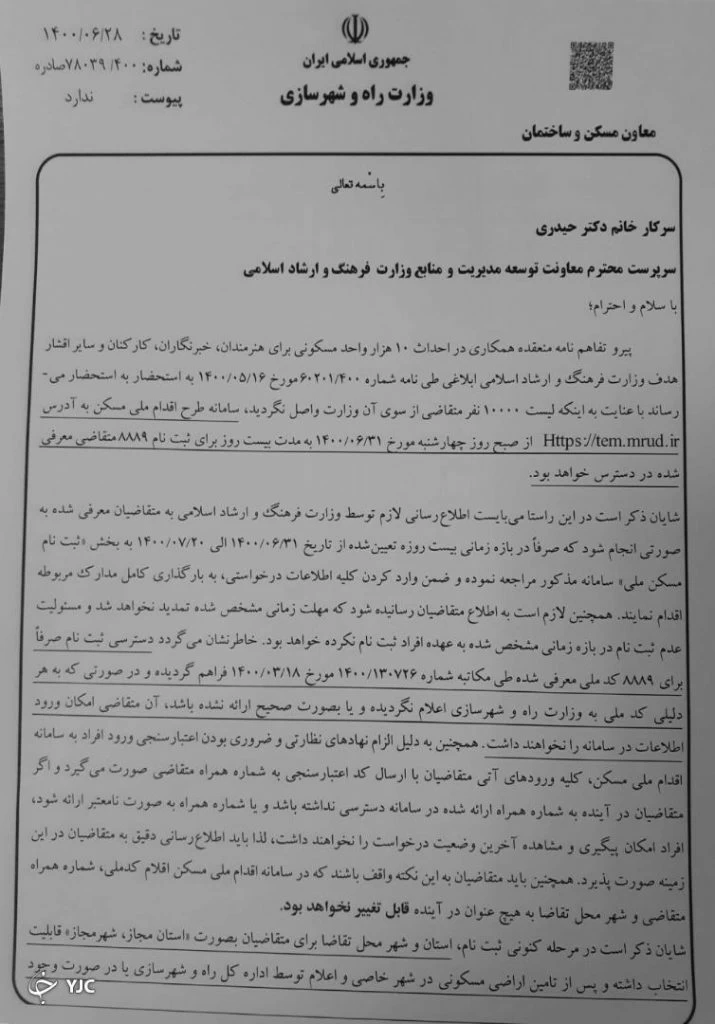 جمهوری اسلامی ایران
وزارت راه و شهرسازی
معاون مسکن و ساختمان
تاریخ : ۱۴۰۰/۰۶/۲۸
شماره: ۷۸۰۳۹/۴۰۰صادره
پیوست : ندارد
باسمه تعالی
سرکار خانم دکتر حیدری
سرپرست محترم معاونت توسعه مدیریت و منابع وزارت فرهنگ و ارشاد اسلامی
با سلام و احترام؛
پیرو تفاهم نامه منعقده همکاری در احداث ۱۰ هزار واحد مسکونی برای هنرمندان، خبرنگاران، کارکنان و سایر اقشار
هدف وزارت فرهنگ و ارشاد اسلامی ابلاغی طی نامه شماره ۶۰۲۰۱/۴۰۰مورخ ۱۴۰۰/۰۵/۱۶ به استحضار به استحضار می-
رساند با عنایت به اینکه لیست ۱۰۰۰۰ نفر متقاضی از سوی آن وزارت واصل نگردید، سامانه طرح اقدام ملی مسکن به آدرس
Https://tem.mrud.ir از صبح روز چهارشنبه مورخ ۱۴۰۰/۰۶/۳۱ به مدت بیست روز برای ثبت نام ۸۸۸۹ متقاضی معرفی
شده در دسترس خواهد بود.
شایان ذکر است در این راستا می‌بایست اطلاع‌رسانی لازم توسط وزارت فرهنگ و ارشاد اسلامی به متقاضیان معرفی شده به
صورتی انجام شود که صرفاً در بازه زمانی بیست روزه تعیین‌شده از تاریخ ۱۴۰۰/۰۶/۳۱ الی ۱۴۰۰/۰۷/۲۰ به بخش «ثبت نام
مسکن ملی» سامانه مذکور مراجعه نموده و ضمن وارد کردن کلیه اطلاعات درخواستی، به بارگذاری کامل مدارک مربوطه
اقدام نمایند. همچنین لازم است به اطلاع متقاضیان رسانیده شود که مهلت زمانی مشخص شده تمدید نخواهد شد و مسئولیت
عدم ثبت نام در بازه زمانی مشخص شده به عهده افراد ثبت نام نکرده خواهد بود. خاطرنشان می‌گردد دسترسی ثبت نام صرفاً
برای ۸۸۸۹ کد ملی معرفی شده طی مکاتبه شماره ۱۴۰۰/۱۳۰۷۲۶ مورخ ۱۴۰۰/۰۳/۱۸ فراهم گردیده و در صورتی که به هر
دلیلی کد ملی به وزارت راه و شهرسازی اعلام نگردیده و یا بصورت صحیح ارائه نشده باشد، آن متقاضی امکان ورود
اطلاعات در سامانه را نخواهند داشت. همچنین به دلیل الزام نهادهای نظارتی و ضروری بودن اعتبارسنجی ورود افراد به سامانه
اقدام ملی مسکن، کلیه ورودهای آتی متقاضیان با ارسال کد اعتبارسنجی به شماره همراه متقاضی صورت می‌گیرد و اگر
متقاضیان در آینده به شماره همراه ارائه شده در سامانه دسترسی نداشته باشد و یا شماره همراه به صورت نامعتبر ارائه شود،
افراد امکان پیگیری و مشاهده آخرین وضعیت درخواست را نخواهند داشت، لذا باید اطلاع‌رسانی دقیق به متقاضیان در این
زمینه صورت پذیرد. همچنین باید متقاضیان به این نکته واقف باشند که در سامانه اقدام ملی مسکن اقلام کدملی، شماره همراه
متقاضی و شهر محل تقاضا به هیچ عنوان در آینده قابل تغییر نخواهد بود.
شایان ذکر است در مرحله کنونی ثبت نام، استان و شهر محل تقاضا برای متقاضیان بصورت «استان مجاز، شهرمجاز» قابلیت
انتخاب داشته و پس از تامین اراضی مسکونی در شهر خاصی و اعلام توسط اداره کل راه و شهرسازی یا در صورت وجود
YJC